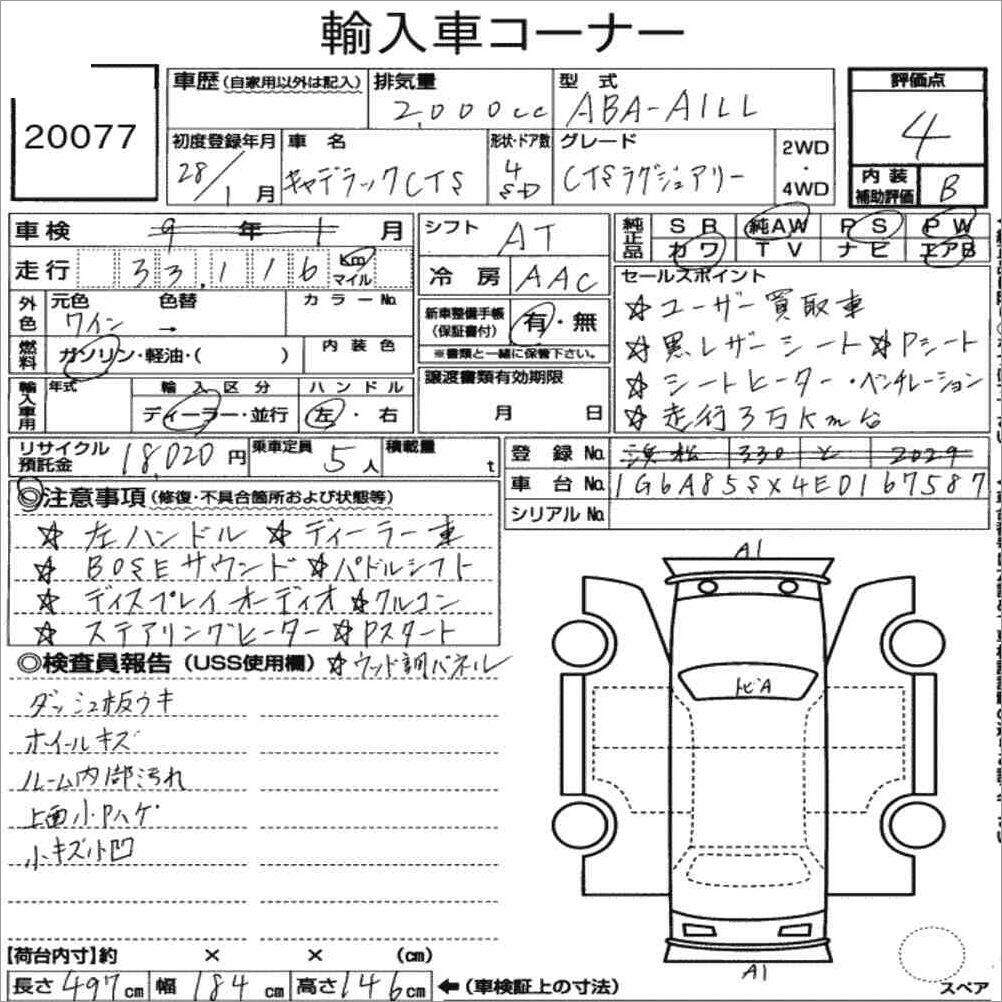 輸入車コーナー
20077
車歴 (自家用以外は記入)
排気量
2,000cc
型 式
ABA-A1LL
評価点
4
初度登録年月
28/1月
車 名
キャデラックCTS
形状・ドア数
4
SD
グレード
CTSラグジュアリー
2WD
・
4WD
内 装
補助評価
B
車検 9 年 1 月
走行 33,116 Km
マイル
シフト AT
冷 房 AAC
純正品
SR 純AW PS PW
カワ TV ナビ エアB
外色
元色 色替 カラーNo.
ワイン →
新車整備手帳
(保証書付)
有・無
※書類と一緒に保管下さい。
セールスポイント
☆ユーザー買取車
☆黒レザーシート☆Pシート
☆シートヒーター・ベンチレーション
☆走行3万Km台
燃料
ガソリン・軽油・( )
内 装 色
輸入車用
年式
輸 入 区 分
ディーラー・並行
ハ ン ド ル
左・右
譲渡書類有効期限
月 日
リサイクル
預託金
18,020円
乗車定員 5人
積載量 t
登 録 No. 浜松 330 と 2029
車 台 No. 1G6A85SX4E0167587
シリアル No.
◎注意事項 (修復・不具合箇所および状態等)
☆ 左ハンドル ☆ ディーラー車
☆ BOSEサウンド ☆パドルシフト
☆ ディスプレイオーディオ ☆クルコン
☆ ステアリングヒーター ☆Pスタート
◎検査員報告 (USS使用欄) ☆ウッド調パネル
ダッシュ板ウキ
ホイールキズ
ルーム内部汚れ
上面小Pハゲ
小キズ小凹
A1
トビA
A1
【荷台内寸】約 × × (cm)
長さ 497cm 幅 184cm 高さ 146cm ←(車検証上の寸法)
スペア